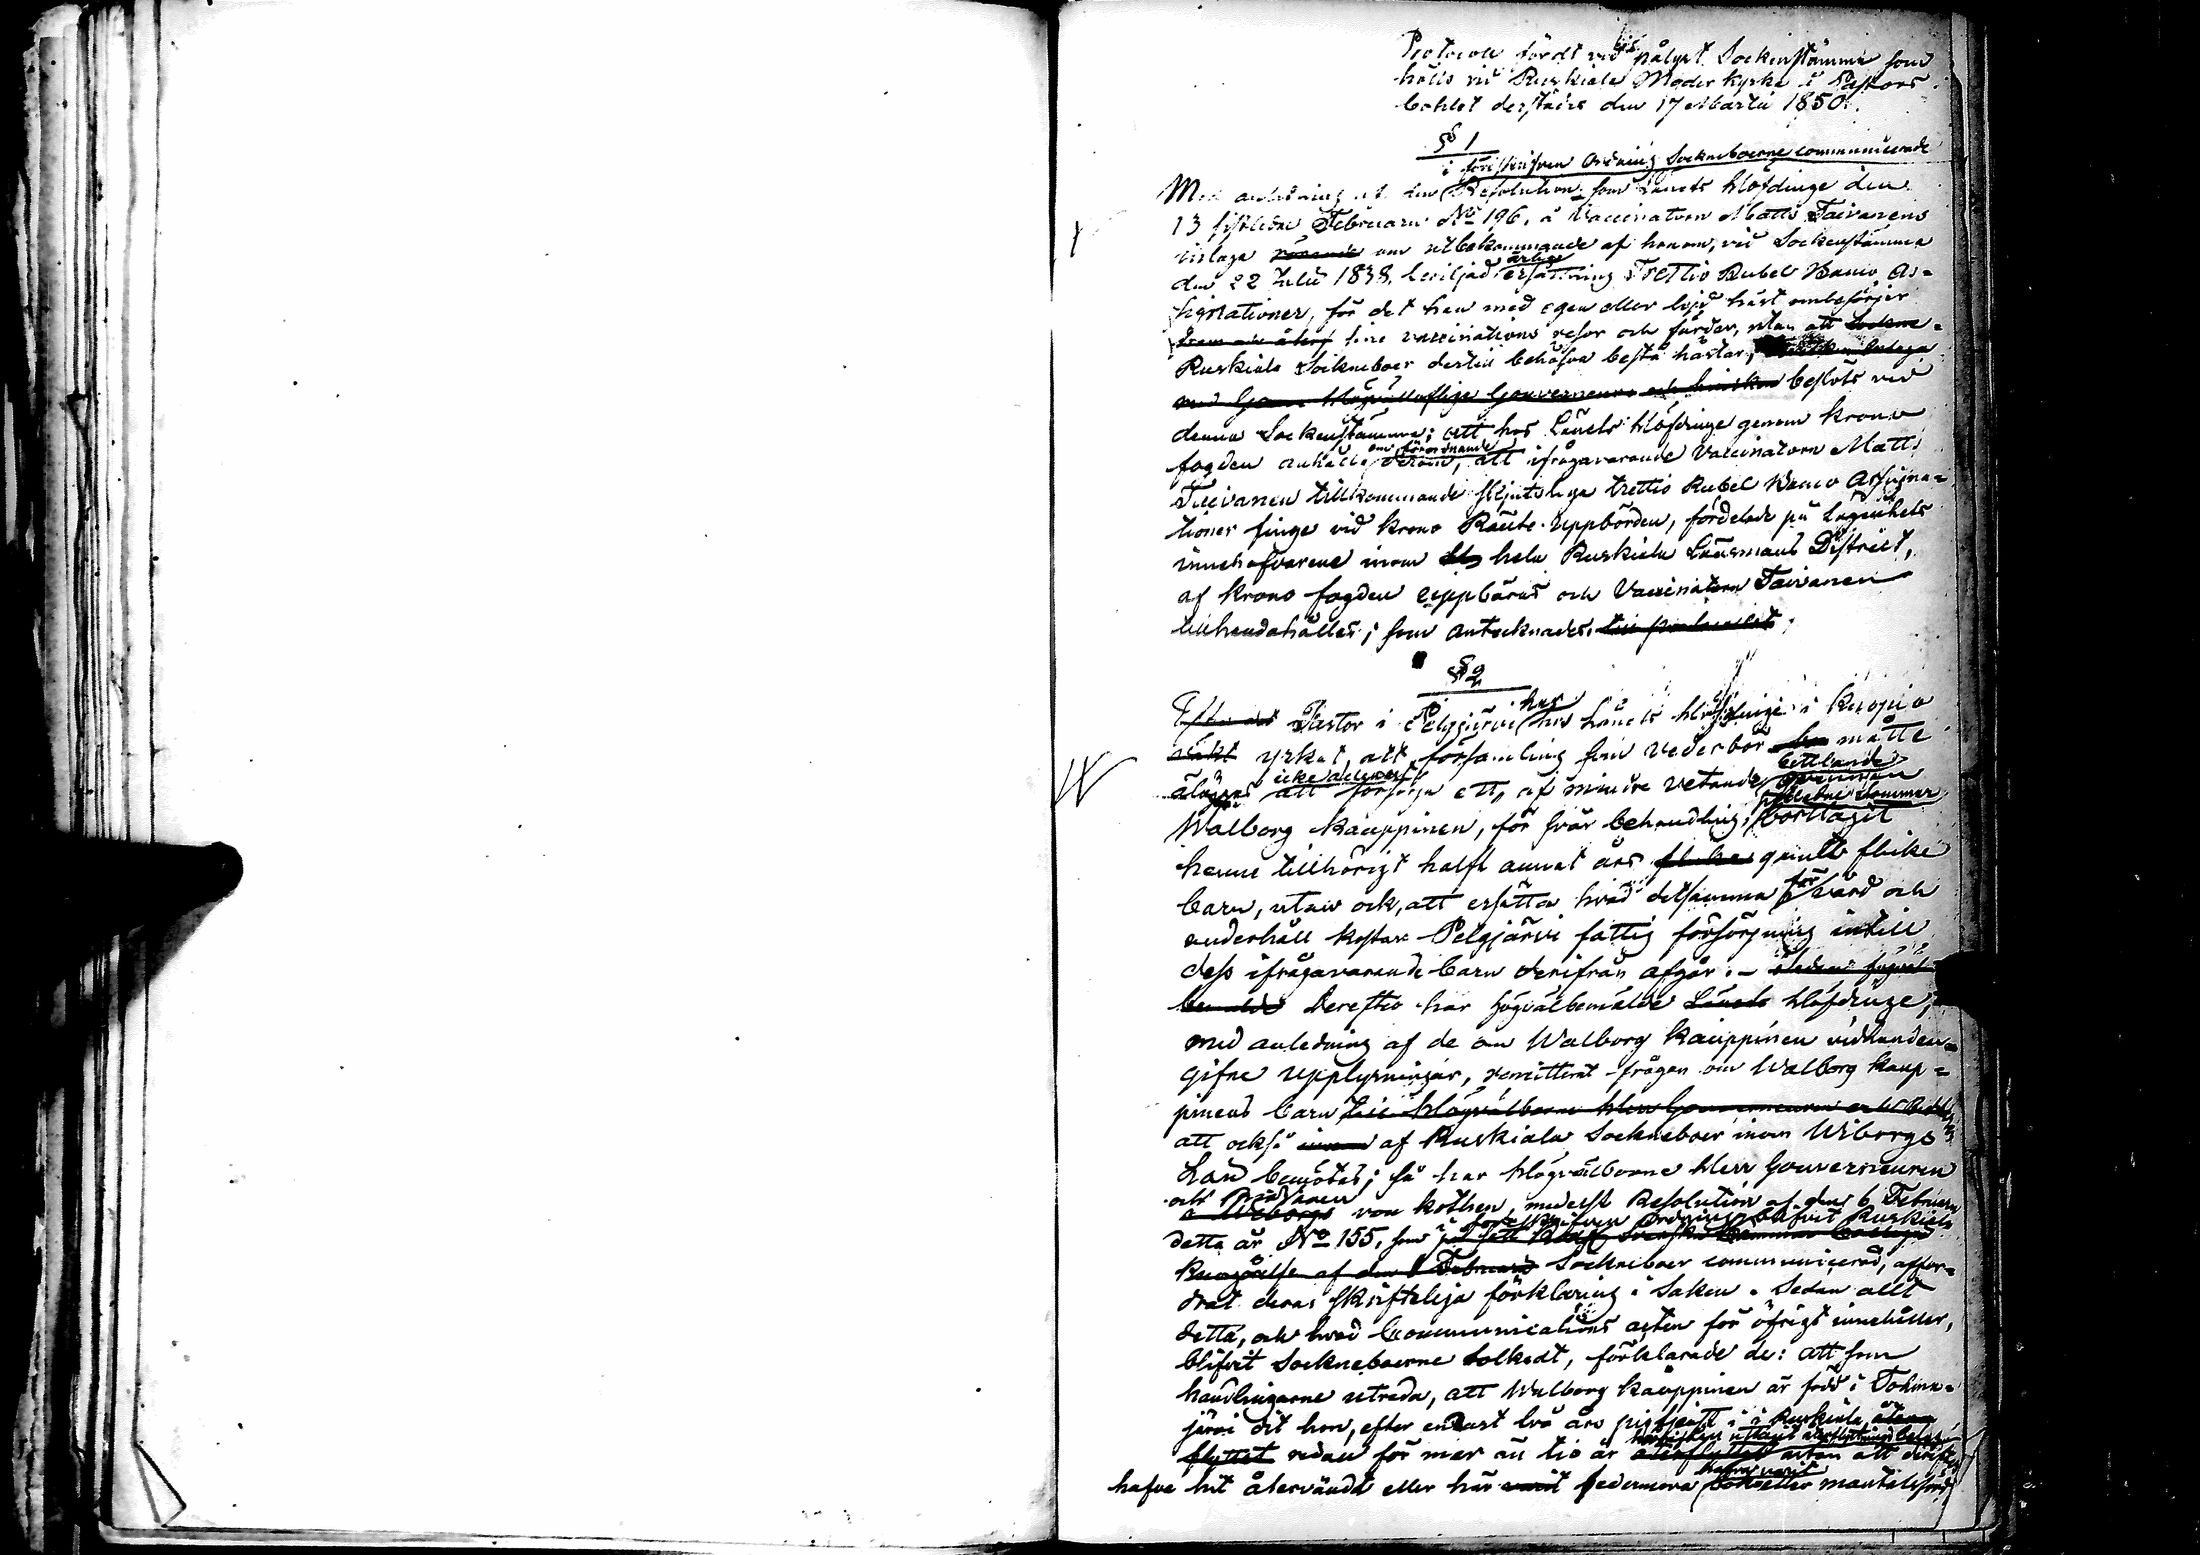 Protocoll fördt vid pålyst Sockenstämma som
hölls vid Ruskiala Moderkyrka i Pastors
bohlet derstädes den 17 Martii 1850.
§ 1
i föreskrifven ordning Sockneboerne communicerade
Med anledning af den Resolution, som Länets Höfdinge den
13 sistledne Februarii No 196, å Vaccinatorn Matts Taivanens
inlaga rörande om utbekommande af honom, vid Sockenstämma
årlige
den 22 Julii 1838, beviljad ersättning Trettio Rubel Banco As-
signationer, för det han med egen eller lejd häst ombesörjer
sine vaccinations resor och färder, utan att Sockne-
Ruskiala Sockneboer dertill behöfva bestå hästar,
Gouverneurs beslöts vid
denna Sockenstämma; att hos Länets Höfdinge genom Krono
om förordnande
fogden anhålla derom, att ifrågavarande Vaccinatorn Matts
Taivanen tillkommande trettio Rubel Banco Assigna-
tioner finge vid Krono Ränte-Uppbörden, fördelade på Lägenhets
innehafvarene inom hela Ruskiala Länsmans District,
af Krono fogden uppbäras och Vaccinatorn Taivanen
tillhandahållas; som antecknades.
§ 2
har
Pastor i Pelgjärvi hos Länets Höfdinge i Kuopio
yrkat, att församling som vederbör måtte
icke allenast bettlande
åläggas att försörja ett, af mindre vetande qvinnan
sistledne sommar
Walborg Kauppinen, för svår behandling, borttagit
henne tillhörigt halft annat års gamlt flicke
för
barn, utan ock, att ersätta hvad detsamma vård och
underhåll kostar Pelgjärvi fattig försörjning intill
dess ifrågavarande barn derifrån afgår. -
Derefter har högvälbemälde Länets Höfdinge,
med anledning af de om Walborg Kauppinen vidhanden-
gifne upplysningar, remitterat frågan om Walborg Kaup-
pinens barn
att också af Ruskiala Sockneboer inom Wiborgs
Län bemötas; så har Högvälborne Herr Gouverneuren
och Riddaren
von Kothen, medelst Resolution af den 6 Februarii
föreskrifven ordning blifvit Ruskiala
detta år No 155, som
af den Februarii Sockneboer communicerad, affor-
drat deras skrifteliga förklaring i saken. Sedan allt
detta, och hvad Communications acten för öfrigt innehåller,
blifvit Sockneboerne tolkadt, förklarade de: att som
handlingarne utreda, att Walborg Kauppinen är född i Tohma-
järvi dit hon, efter endast två års pigtjenst i Ruskiala, återn
flyttat redan för mer än tio år utan att
hafva varit
hafva hit återvändt eller här varit sedermera mantalsförd,